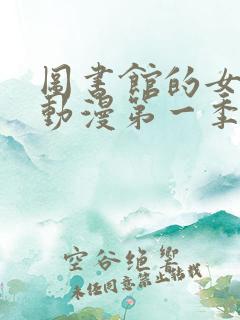 圕書館的女
動漫第一季
空谷绝響
未经同意禁止转载